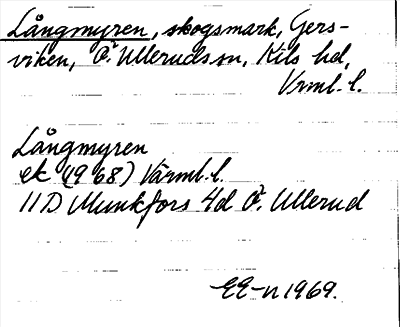 Långmyren, skogsmark, Gers-
viken, Ö. Ulleruds sn, Kils hd,
Vrml. l.
Långmyren
ek (1968) Värml. l.
11D Munkfors 4d Ö. Ullerud
EE-n 1969.